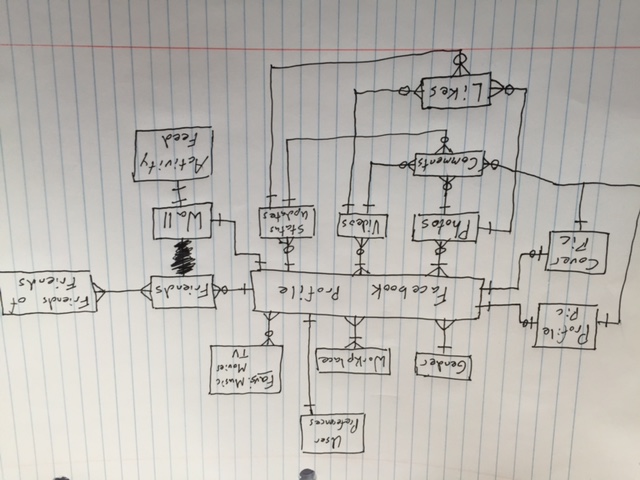 User
Preferences
Gender
Workplace
Favs: Music
Movies
TV
Profile
Pic
Facebook Profile
Friends
Friends of
Friends
Cover
Pic
Photos
Videos
Status
Updates
Wall
Comments
Activity
Feed
Likes